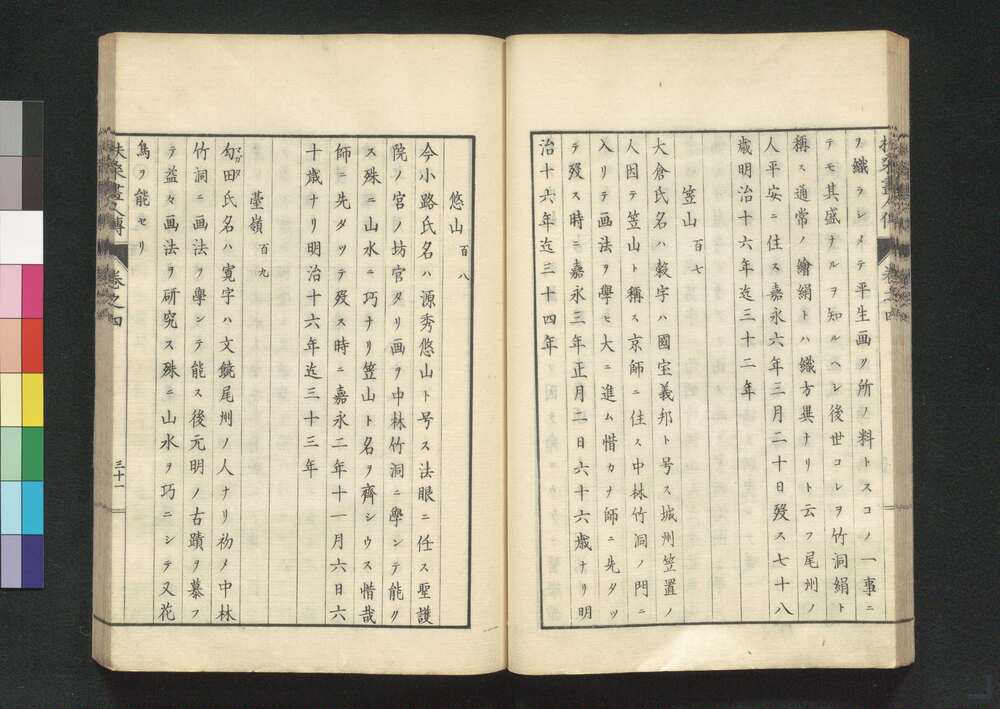 ヲ織ラシメテ平生画ク所ノ料トスコノ一事ニ
テモ其盛ナルヲ知ルヘシ後世コレヲ竹洞絹ト
稱ス通常ノ繪絹トハ織方異ナリト云フ尾州ノ
人平安ニ住ス嘉永六年三月二十日歿ス七十八
歳明治十六年迄三十二年
笠山 百七
大倉氏名ハ穀字ハ國宝義邦ト号ス城州笠置ノ
人因テ笠山ト稱ス京師ニ住ス中林竹洞ノ門ニ
入リテ画法ヲ學ヒ大ニ進ム惜カナ師ニ先タツ
テ歿ス時ニ嘉永三年正月二日六十六歳ナリ明
治十六年迄三十四年
悠山 百八
今小路氏名ハ源秀悠山ト号ス法眼ニ任ス聖護
院ノ宮ノ坊官タリ画ヲ中林竹洞ニ學ンテ能ク
ス殊ニ山水ニ巧ナリ笠山ト名ヲ齊シウス惜哉
師ニ先タツテ歿ス時ニ嘉永二年十一月六日六
十歳ナリ明治十六年迄三十三年
臺嶺 百九
勾田氏名ハ寛字ハ文饒尾州ノ人ナリ初メ中林
マガタ
竹洞ニ画法ヲ學ンテ能ス後元明ノ古蹟ヲ慕フ
テ益々画法ヲ研究ス殊ニ山水ヲ巧ニシテ又花
鳥ヲ能セリ
扶桑畫人傳 巻之四 三十一